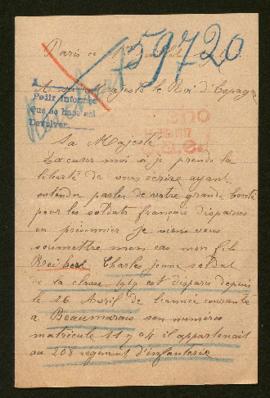 Paris le
59720
A sa Majesté le Roi d'Espagne
A
Petit
que no hace
Devolver
Sa Majesté
Excusez moi si je prends la
liberté de vous écrire ayant
entendu parler de votre grande bonté
pour les soldats français disparus
ou prisonnier je viens vous
soumettre mon cas mon fils
Charles jeune soldat
de la classe 1919 est disparu depuis
le 26 Avril de l'année courante
a Beaumarais son numéros
matricule 11 9 04 il appartenait
au 208 régiment d'infanterie